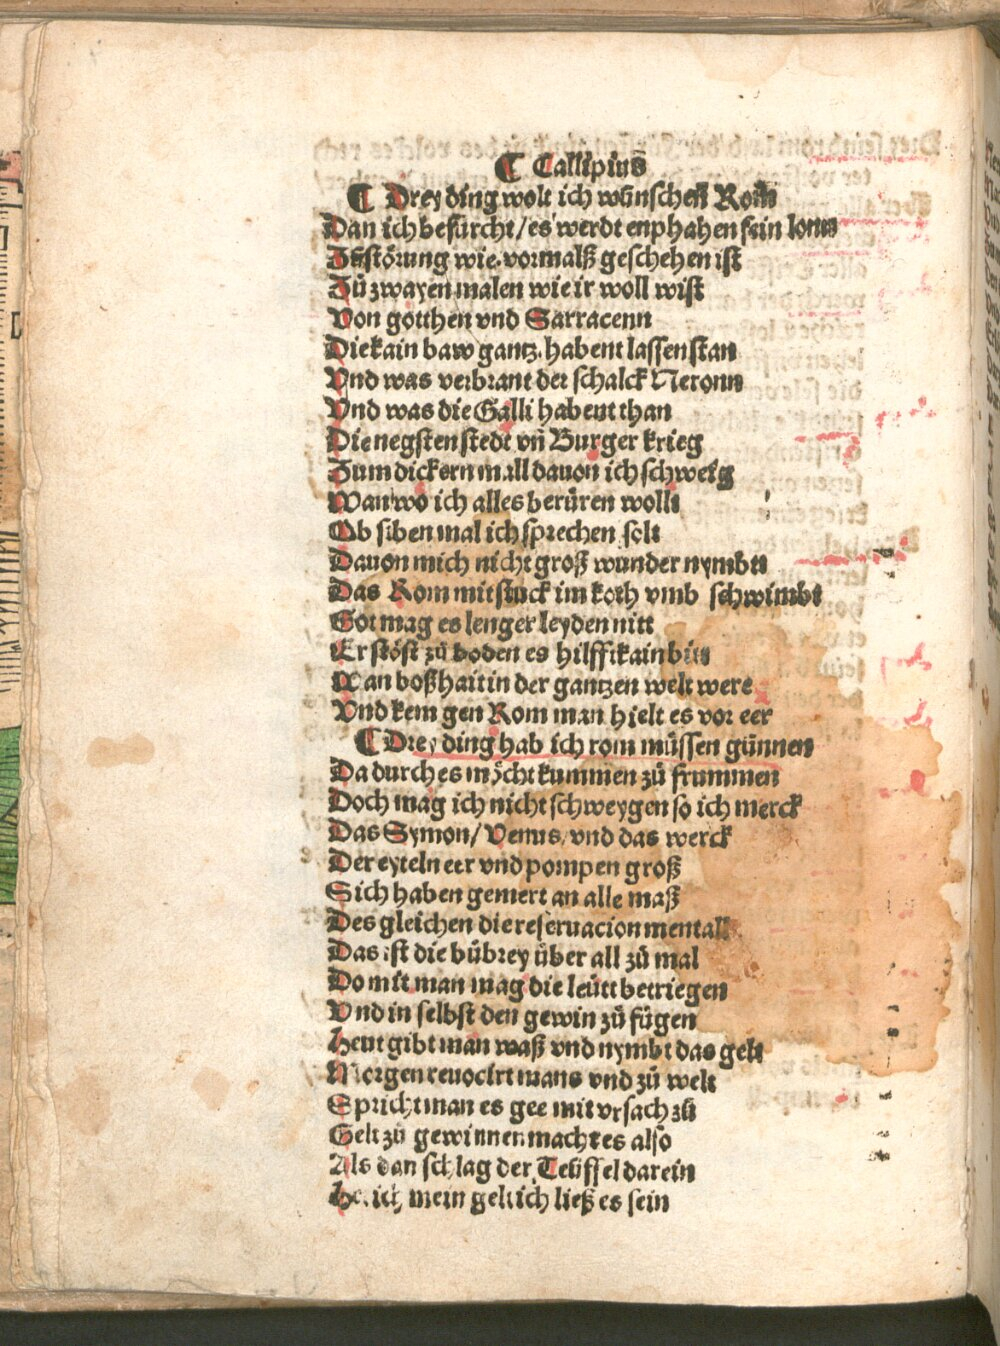 ¶ Callipius
¶ Drey ding wolt ich wünschen Rom
Dan ich befürcht/es werdt enphahen sein lone
Zůstörung wie vormalß geschehen ist
Zů zwayen malen wie ir woll wist
Von gotthen vnd Sarracenn
Die kain baw gantz habent lassen stan
Vnd was verbrant der schalck Neronn
Vnd was die Galli habent than
Die negsten stedt vñ Burger krieg
Zum dickern mall dauon ich schweig
Wan wo ich alles berüren wollt
Ob siben mal ich sprechen solt
Dauon mich nicht groß wunder nymbtt
Das Rom mit stuck im koth vmb schwimbt
Got mag es lenger leyden nitt
Er stöst zů boden es hilfft kain bitt
Wan boßhait in der gantzen welt were
Vnd kem gen Rom man hielt es vor eer
¶ Drey ding hab ich rom müssen günnen
Da durch es möcht kummen zů frummen
Doch mag ich nicht schweygen so ich merck
Das Symon/ Venus/ vnd das werck
Der eyteln eer vnd pompen groß
Sich haben gemert an alle maß
Des gleichen die reseruacion mentall
Das ist die bübrey über all zů mal
Do mit man mag die leütt betriegen
Vnd in selbst den gewin zů fügen
Heut gibt man waß vnd nymbt das gelt
Morgen reuocirt mans vnd zů welt
Spricht man es gee mit vrsach zů
Gelt zů gewinnen macht es also
Als dan schlag der Teüffel darein
Het ich mein gelt ich ließ es sein